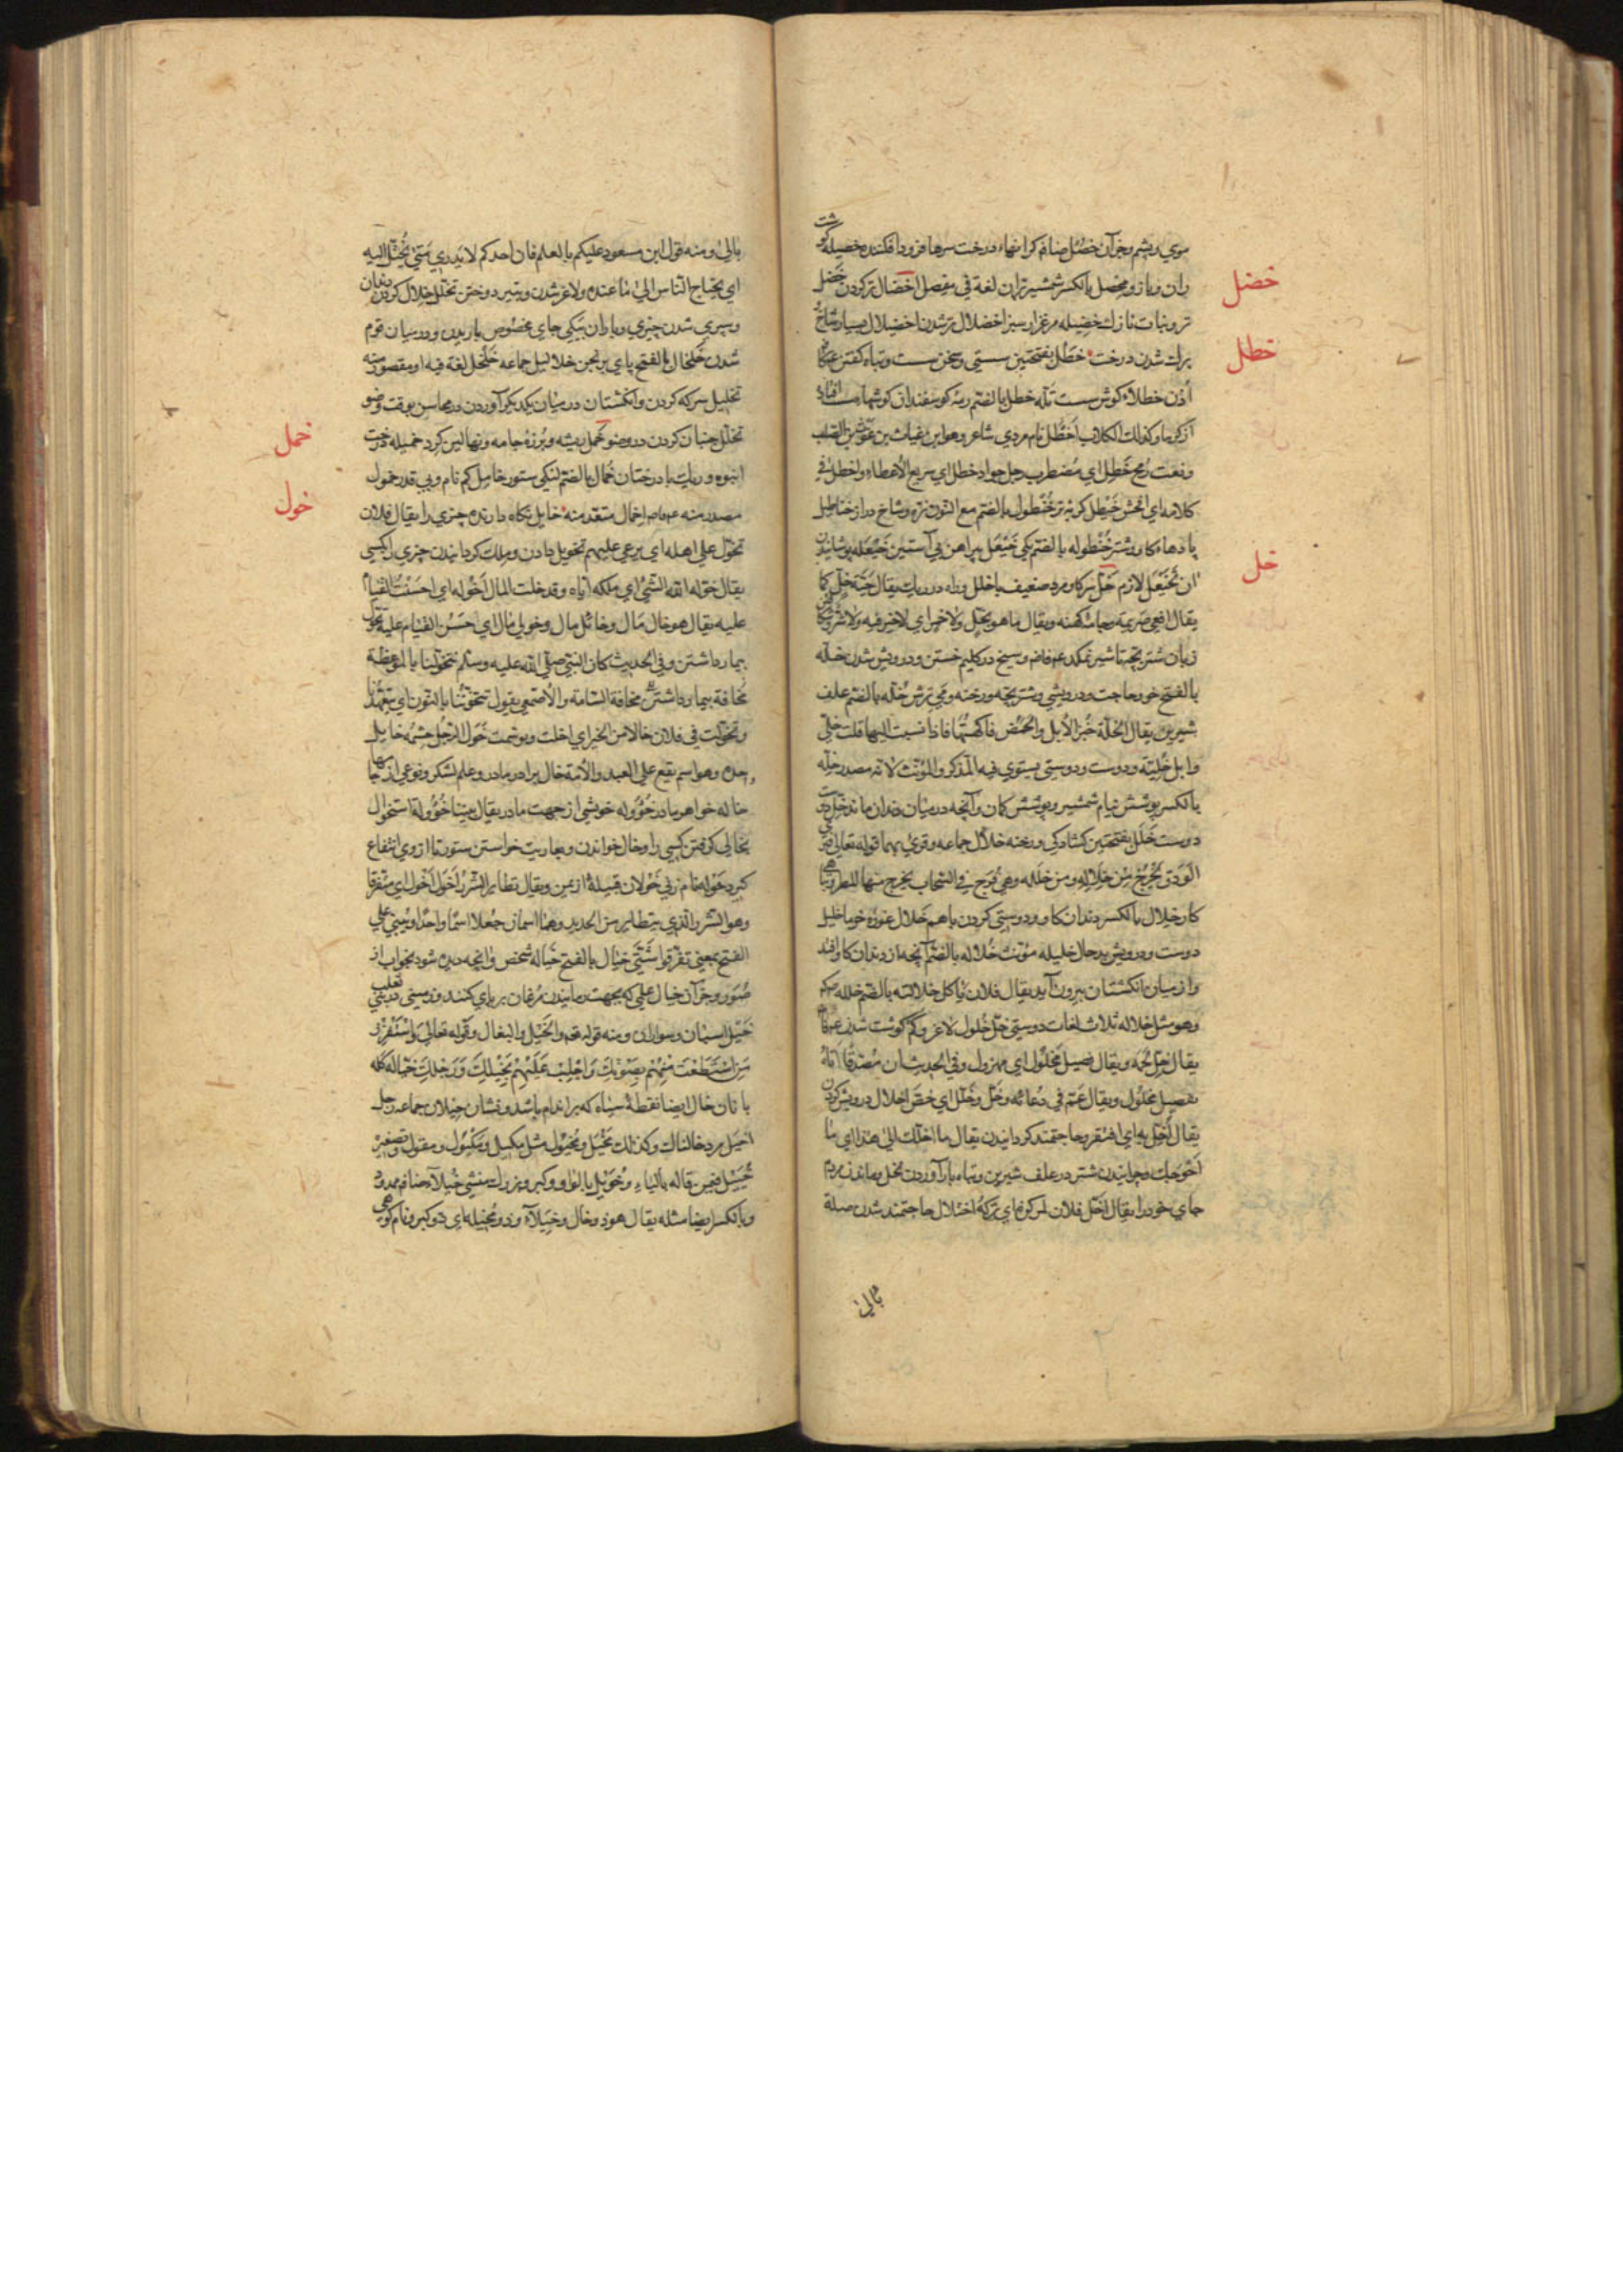 موي و پشم و جز آن خصل ضام كرانهاء درخت سرها فرود افكنده خصيله گوشت
ران و بازو مخصل بالكسر شمشير بران لغة في مفصل اخضال تر كردن خضل
خضل
تر و نبات نازك خضيله مرغزار سبز اخضلال تر شدن اخضيلال بسيار شاخ
برك شدن درخت خطل بفتحتين سستي و سخن سست و تباه كفتن
خطل
اذن خطلاء كوش سست ثلة خطل بالضم رمه كوسفندان
اخطل نام مردي شاعر وهو ابن غياث بن غوث
ونعت رمح خطل اي مضطرب رجل جواد خطل اي سريع الاعطاء واخطل في
كلامه اي افحش خيطل كربه نر خنطول بالضم مع النون نره و شاخ دراز خناطيل
خنطوله بالضم يكي خيعل پيراهن بي آستين خيعله پوشانيدن
ان تخيعل لازم خل سركه و مرد ضعيف يا خلل و راه در ريك يقال حية خل كما
خل
يقال افعي صريمة و جامه كهنه ويقال ما هو بخل ولا خمر اي لا خير فيه ولا شر
زبان شتر بچه تا شير نمكد و سيخ در كليم خستن و درويش شدن خله
بالفتح خو و حاجت و درويشي و شتر بچه و رخنه و مي ترش خله بالضم علف
شيرين يقال الخلة خبز الابل والحمض فاكهتها فاذا نسبت اليها قلت خلي
وابل خلية و دوست و دوستي يستوي فيه المذكر والمؤنث لانه مصدر خله
بالكسر پوشش نيام شمشير و پوشش كمان و آنچه در ميان دندان ماند خل
دوست خلل بفتحتين كشادكي و رخنه خلال جماعه وقرئ بهما قوله تعالي فتري
الودق يخرج من خلاله ومن خلله وهي فرج في السحاب يخرج منها المطر
كار خلال بالكسر دندان كاو و دوستي كردن با هم خلال غوره خرما خليل
دوست و درويش بدحال خليله مؤنث خلاله بالضم آنچه از دندان كاو افتد
و از ميان انكشتان بيرون آيد يقال فلان ياكل خلالته بالضم خلله
وهو مثل خلاله ثلاث لغات دوستي خل خلول لاغر و كم كوشت شدن
يقال خل لحمه ويقال فصيل مخلول اي مهزول وفي الحديث ان مصدقا اتاه
بفصيل مخلول ويقال عم في دعائه وخل وخلل اي خص اخلال درويش كردن
يقال اخل به اي افتقر و حاجتمند كردانيدن يقال ما اخلك الي هذا اي ما
احوجك و چرانيدن شتر در علف شيرين و تباه بار آوردن نخل و ماندن مردم
جاي خود را يقال اخل فلان بمركزه اي تركه اختلال حاجتمند شدن صلة
بالي
بالي ومنه قول ابن مسعود عليكم بالعلم فان احدكم لا يدري متي يختل اليه
اي يحتاج الناس الي ما عنده و لاغر شدن و بتير دوختن تخلل خلال كردن دندان
و سپري شدن چيزي و باران بيكي جاي مخصوص باريدن و در ميان قوم
شدن خلخال بالفتح پاي برنجن خلاليل جماعه خلخل لغة فيه او مقصور منه
تخليل سركه كردن و انكشتان در ميان يكديكر آوردن در محاسن بوقت وضو
تخلل جنبان كردن در وضو خمل ريشه و پرزه جامه و نهالين كرد خميله درخت
خمل
انبوه و ريك با درختان خمال بالضم لنكي ستور خامل كم نام و بي قدر خمول
مصدر منه اخمال متعد منه خايل نكاه دارنده چيزي را يقال فلان
خول
تخول علي اهله اي يرعي عليهم تخويل دادن و ملك كردانيدن چيزي را بكسي
يقال خوله الله الشئ اي ملكه اياه وقد خلت المال اخوله اي احسنت القيام
عليه يقال هو خال مال وخائل مال وخولي مال اي حسن القيام عليه تخول
تيمار داشتن وفي الحديث كان النبي صلي الله عليه وسلم يتخولنا بالموعظة
مخافة السامة والاصمعي يقول يتخوننا بالنون اي يتعهدنا
وتخولت في فلان خالا من الخير اي اخلت وتوسمت خول الرجل حشمه خايل
وهو اسم يقع علي العبد والامة خال برادر مادر و علم لشكر و نوعي از جامها
خاله خواهر مادر خؤوله خويشي از جهت مادر يقال بيننا خؤولة استخوال
بخالي كرفتن كسي را و خال خواندن و بعاريت خواستن ستور تا از وي انتفاع
كيرد خوله نام زني خولان قبيلة از يمن ويقال تطاير الشرر اخول اخول اي متفرقا
وهو الشرر الذي يتطاير من الحديد وهما اسمان جعلا اسما واحدا وبني علي
الفتح بمعني تفرقوا شتي خيال بالفتح خياله شخص و آنچه ديده شود بخواب از
صور و جز آن خيال علمي كه بجهت رمانيدن مرغان بر پاي كنند
خيل اسپان و سواران ومنه قوله تعـ والخيل والبغال وقوله تعالي واستفزز
من استطعت منهم بصوتك واجلب عليهم بخيلك ورجلك خياله كله
بانان خال ايضا نقطه سياه كه بر اندام باشد و نشان خيلان جماعه رجل
اخيل مرد خالناك وكذلك مخيل ومخيول مثل مكيل ومكيول ومقول وتصغير
خييل فيمن قاله بالياء وخويل بالواو و كبر و بزرك منشي خيلاء ضام ممدود
وبالكسر ايضا مثله يقال هو ذو خال وخيلاء وذو مخيله اي ذو كبر و نام كوهي